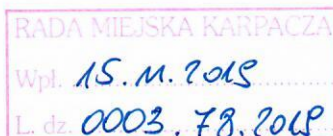 RADA MIEJSKA KARPACZA
Wpł. 15.11.2019
L. dz. 0003.78.2019